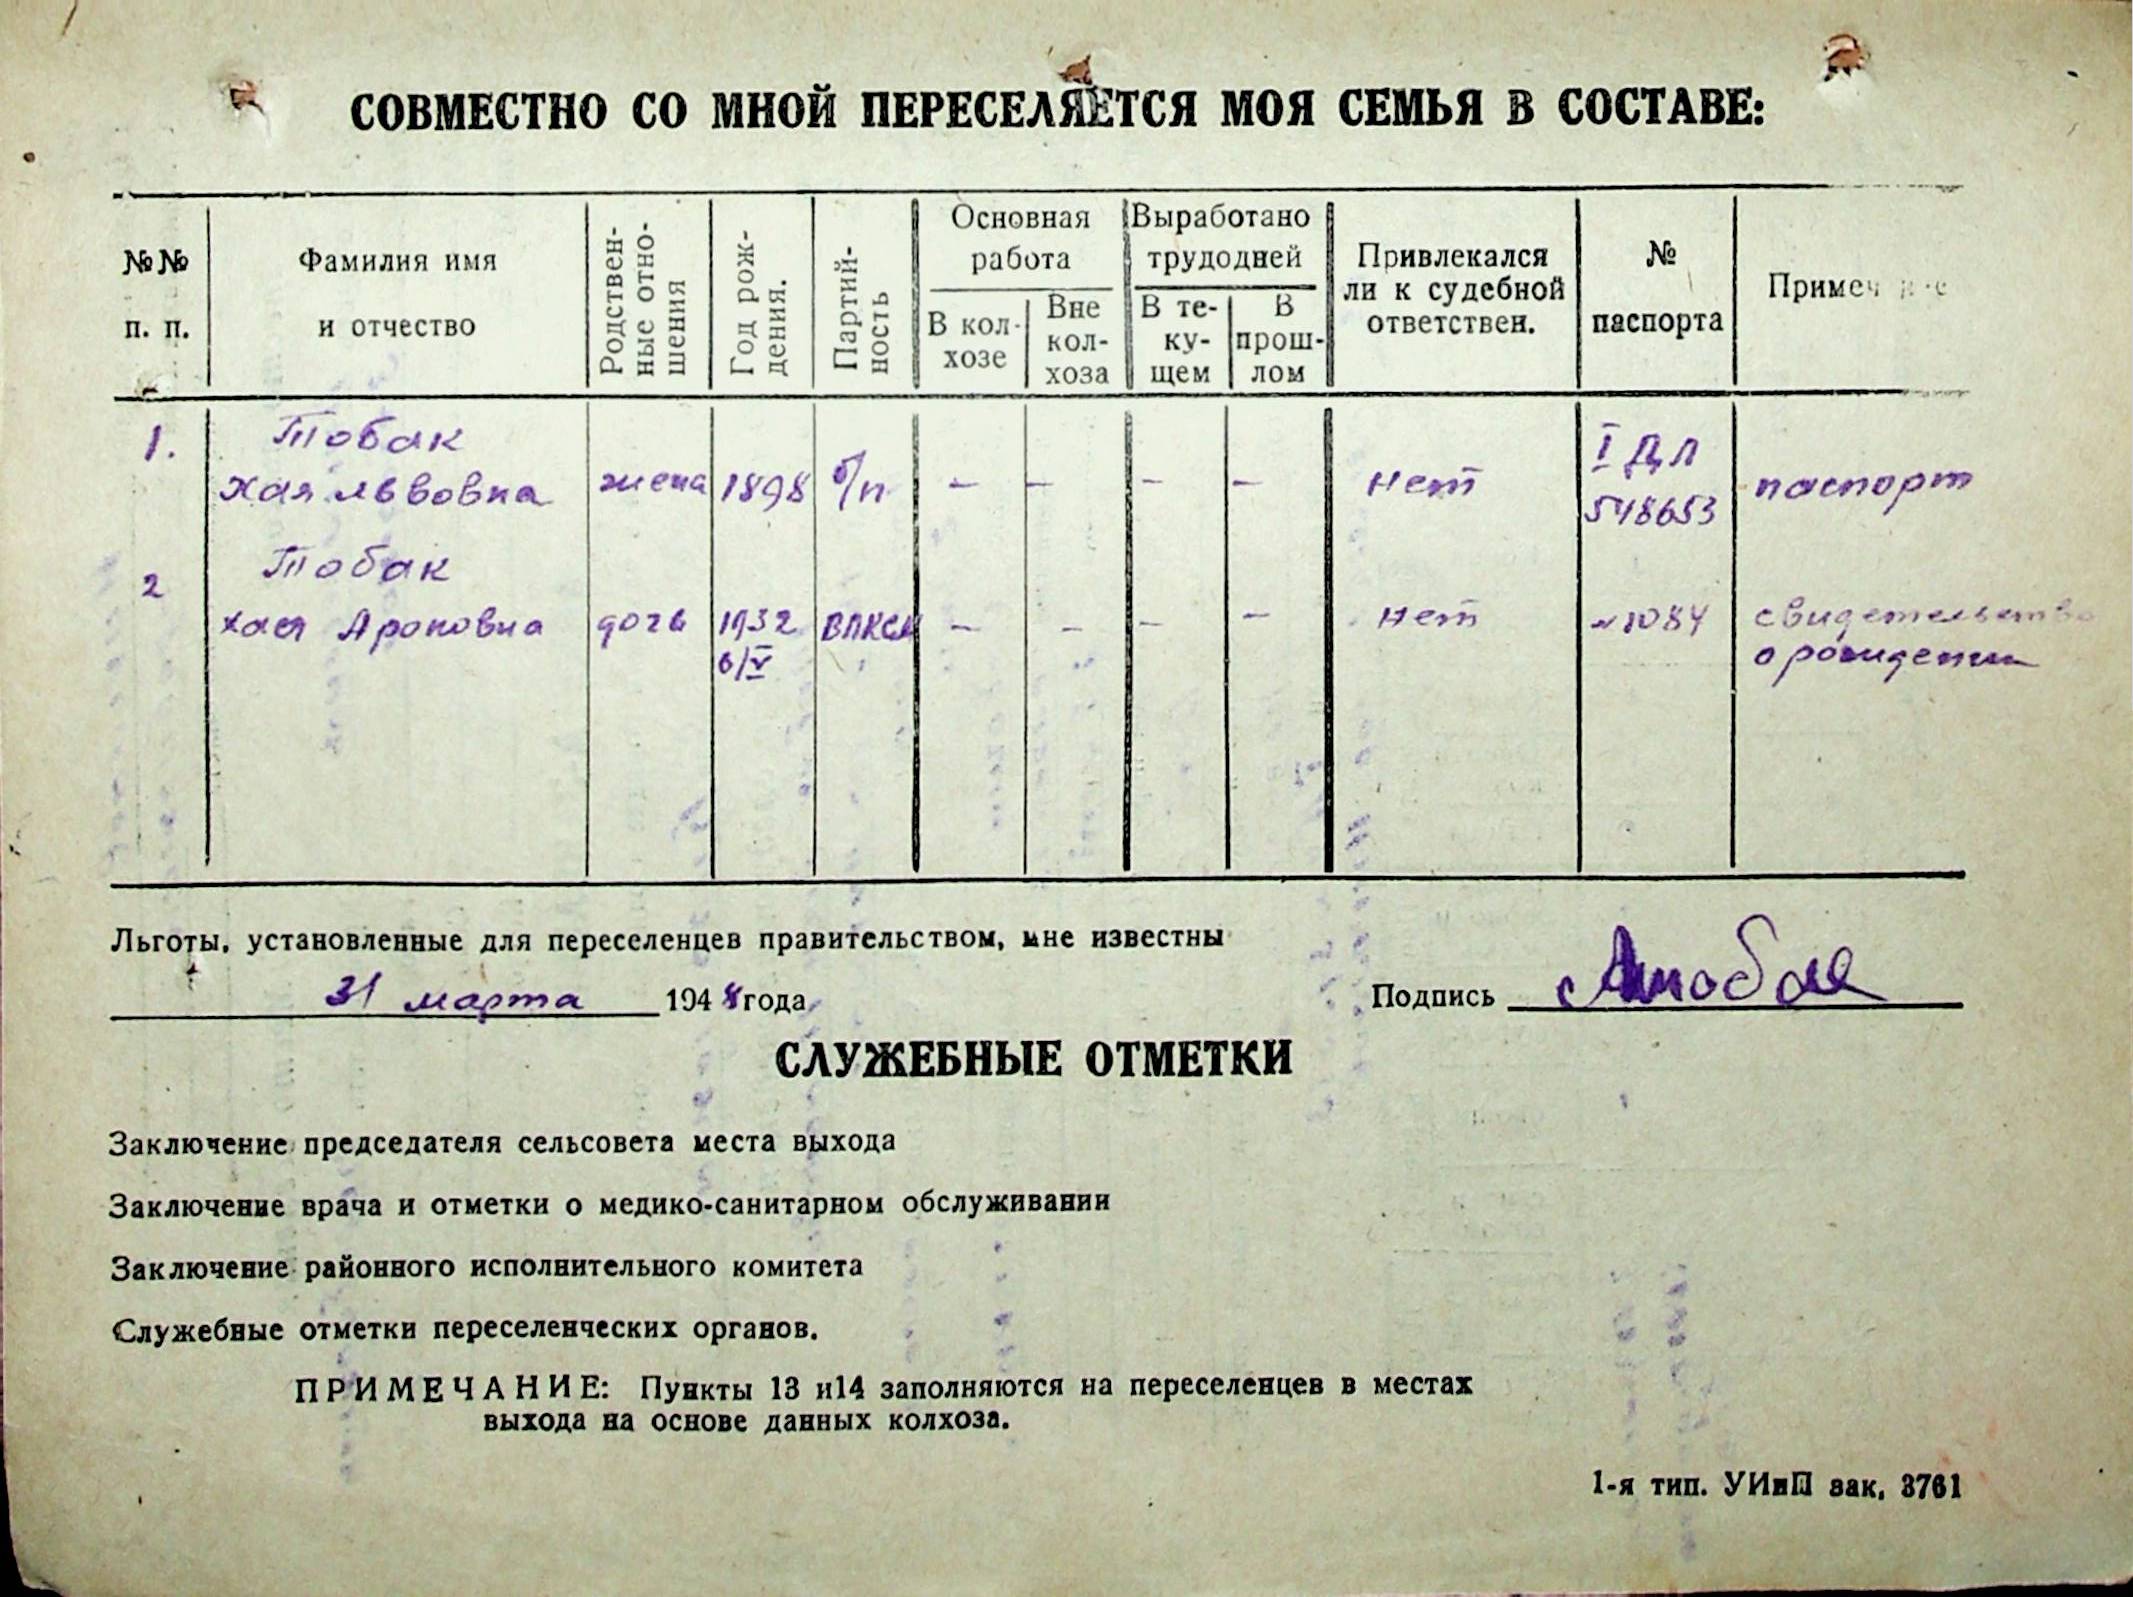 СОВМЕСТНО СО МНОЙ ПЕРЕСЕЛЯЕТСЯ МОЯ СЕМЬЯ В СОСТАВЕ:
№№ п. п.
Фамилия имя и отчество
Родствен-ные отно-шения
Год рож-дения.
Партий-ность
Основная работа
В кол-хозе
Вне кол-хоза
Выработано трудодней
В те-ку-щем
В прош-лом
Привлекался ли к судебной ответствен.
№ паспорта
Примеч
1. Тобак Хая Львовна жена 1898 б/п – – – – Нет I ДЛ 548653 паспорт
2 Тобак Хая Ароновна дочь 1932 6/V ВЛКСМ – – – – Нет №1084 свидетельство о рождении
Льготы, установленные для переселенцев правительством, мне известны
31 марта 1948 года
Подпись
СЛУЖЕБНЫЕ ОТМЕТКИ
Заключение председателя сельсовета места выхода
Заключение врача и отметки о медико-санитарном обслуживании
Заключение районного исполнительного комитета
Служебные отметки переселенческих органов.
ПРИМЕЧАНИЕ: Пункты 13 и14 заполняются на переселенцев в местах
выхода на основе данных колхоза.
1-я тип. УИиП зак, 3761